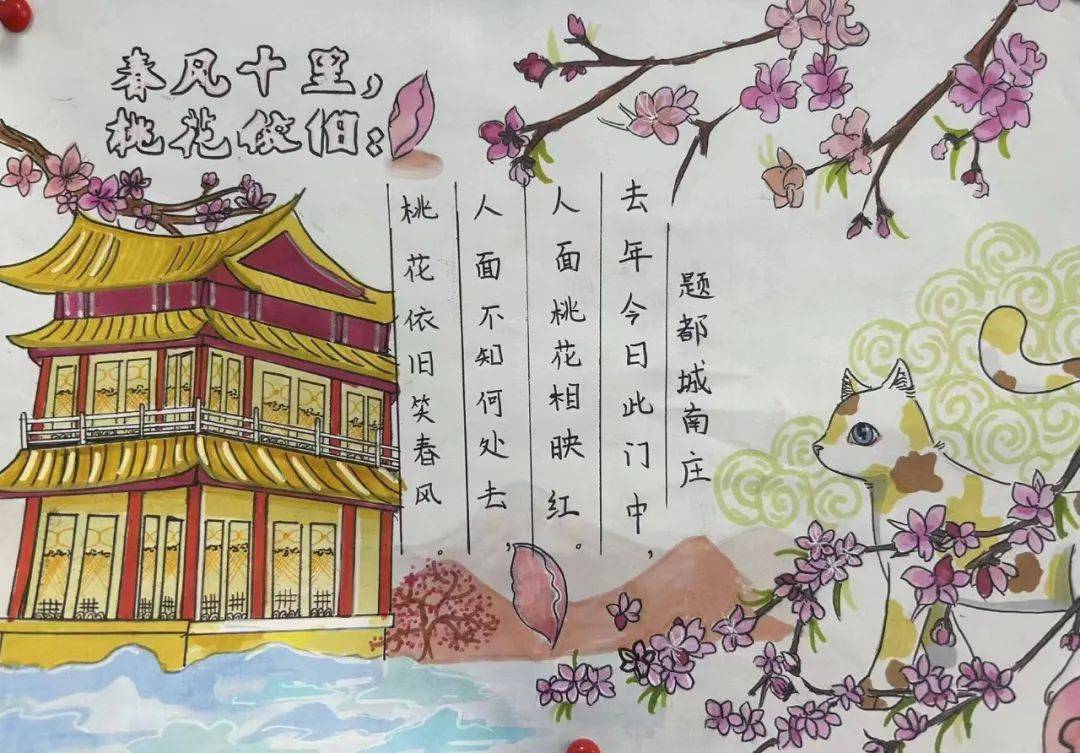 春风十里，
桃花依旧：
题都城南庄
去年今日此门中，
人面桃花相映红。
人面不知何处去，
桃花依旧笑春风。